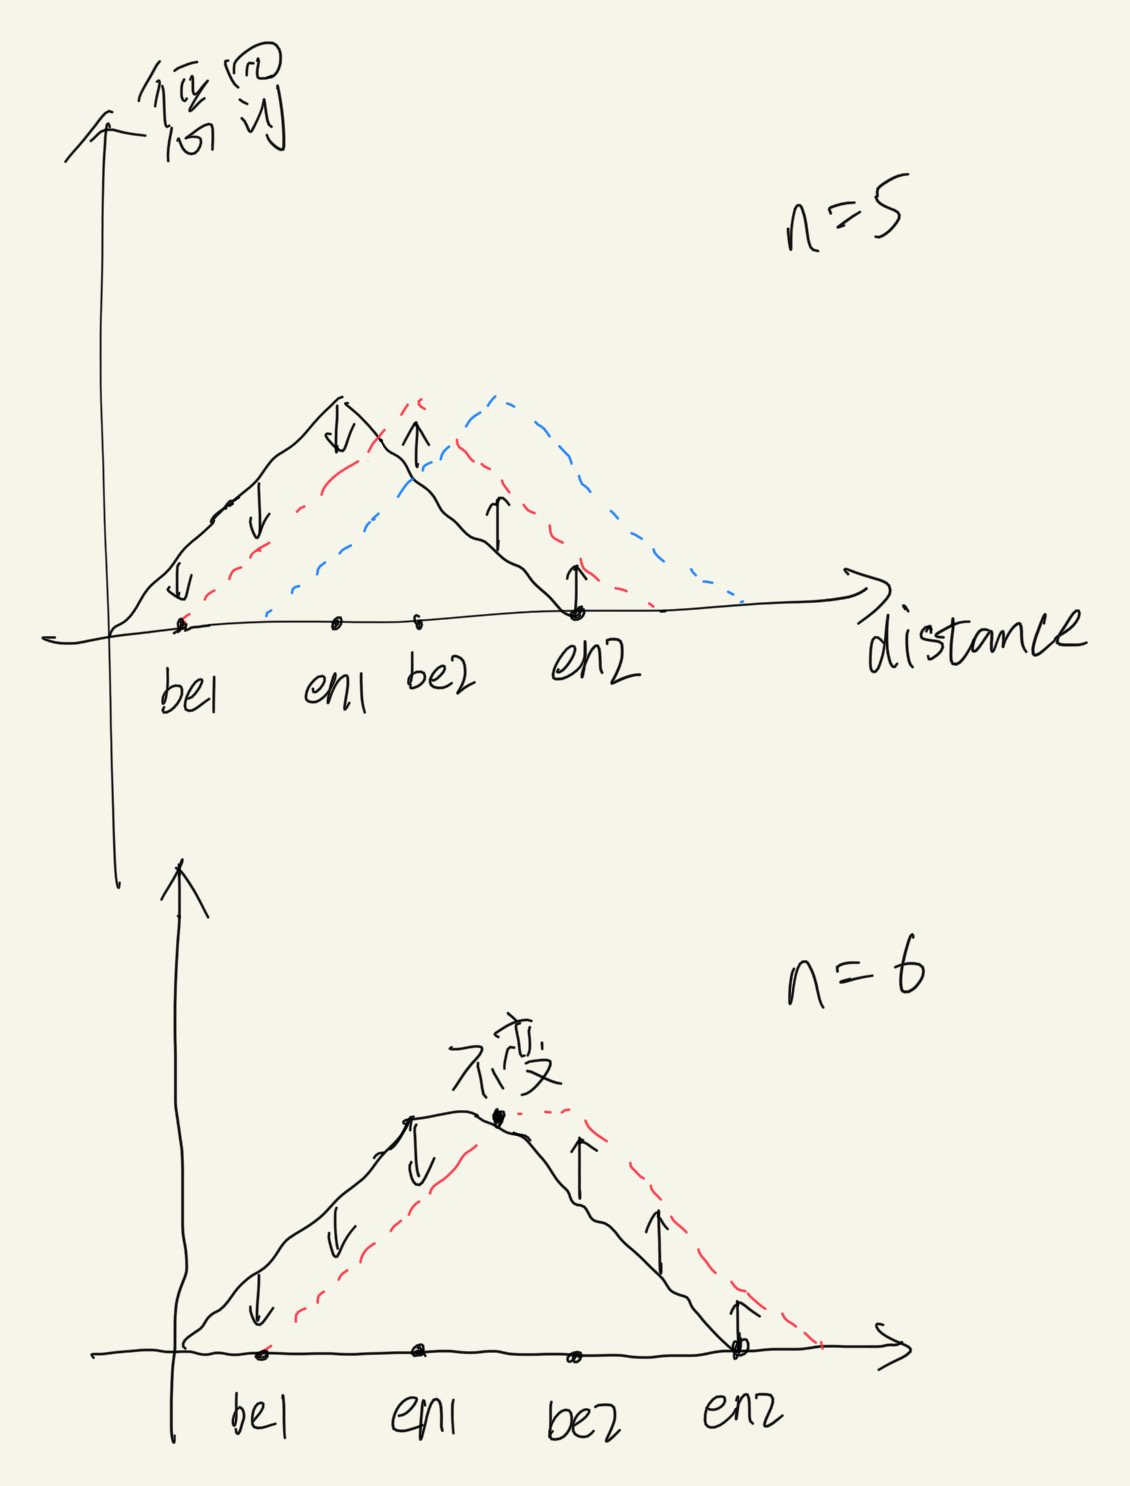 惩罚
n=5
be1 en1 be2 en2 distance
n=6
不变
be1 en1 be2 en2